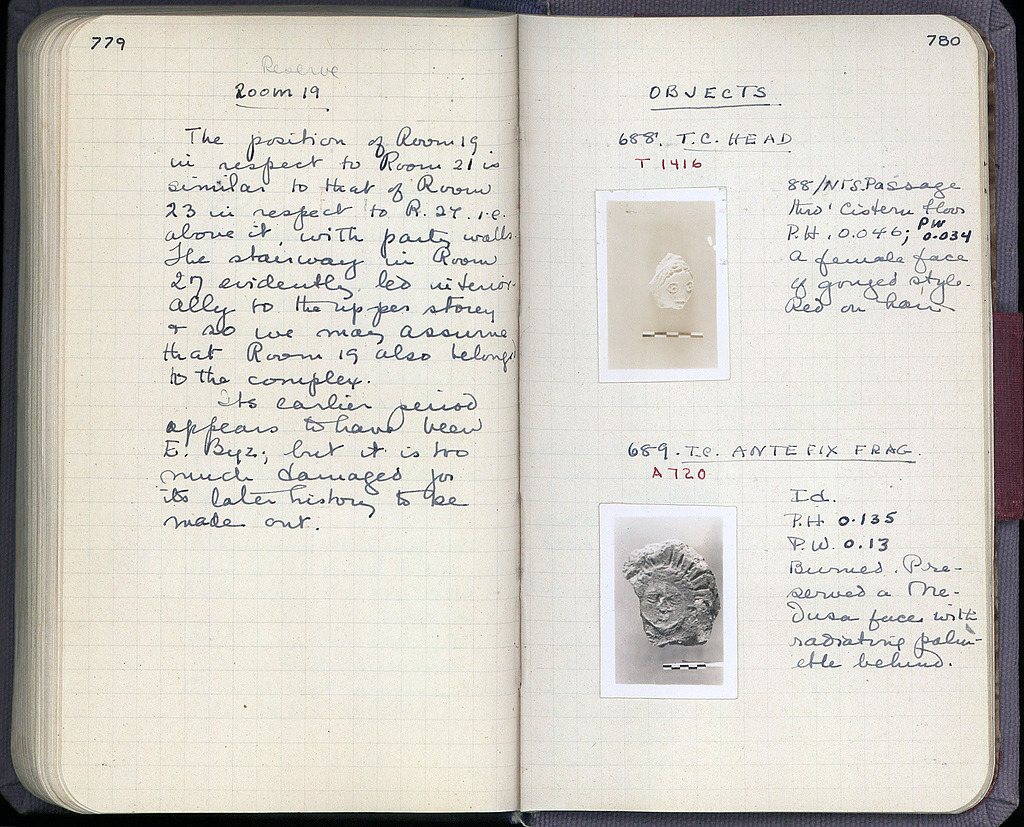 779
Reserve
Room 19
The position of Room 19
in respect to Room 21 is
similar to that of Room
23 in respect to R. 27. i.e.
above it, with party walls.
The stairway in Room
27 evidently led interior-
ally to the upper storey
& so we may assume
that Room 19 also belongs
to the complex.
Its earlier period
appears to have been
E. Byz; but it is too
much damaged for
its later history to be
made out.
780
OBJECTS
688. T.C. HEAD
T 1416
88/NTS. Passage
thro' Cistern floor
P.H. 0.046; PW 0.034
A female face
of gouged style.
Red on hair
689. T.C. ANTEFIX FRAG.
A 720
Id.
P.H 0.135
P.W. 0.13
Burned. Pre-
served a Me-
dusa face with
radiating palm-
ette behind.